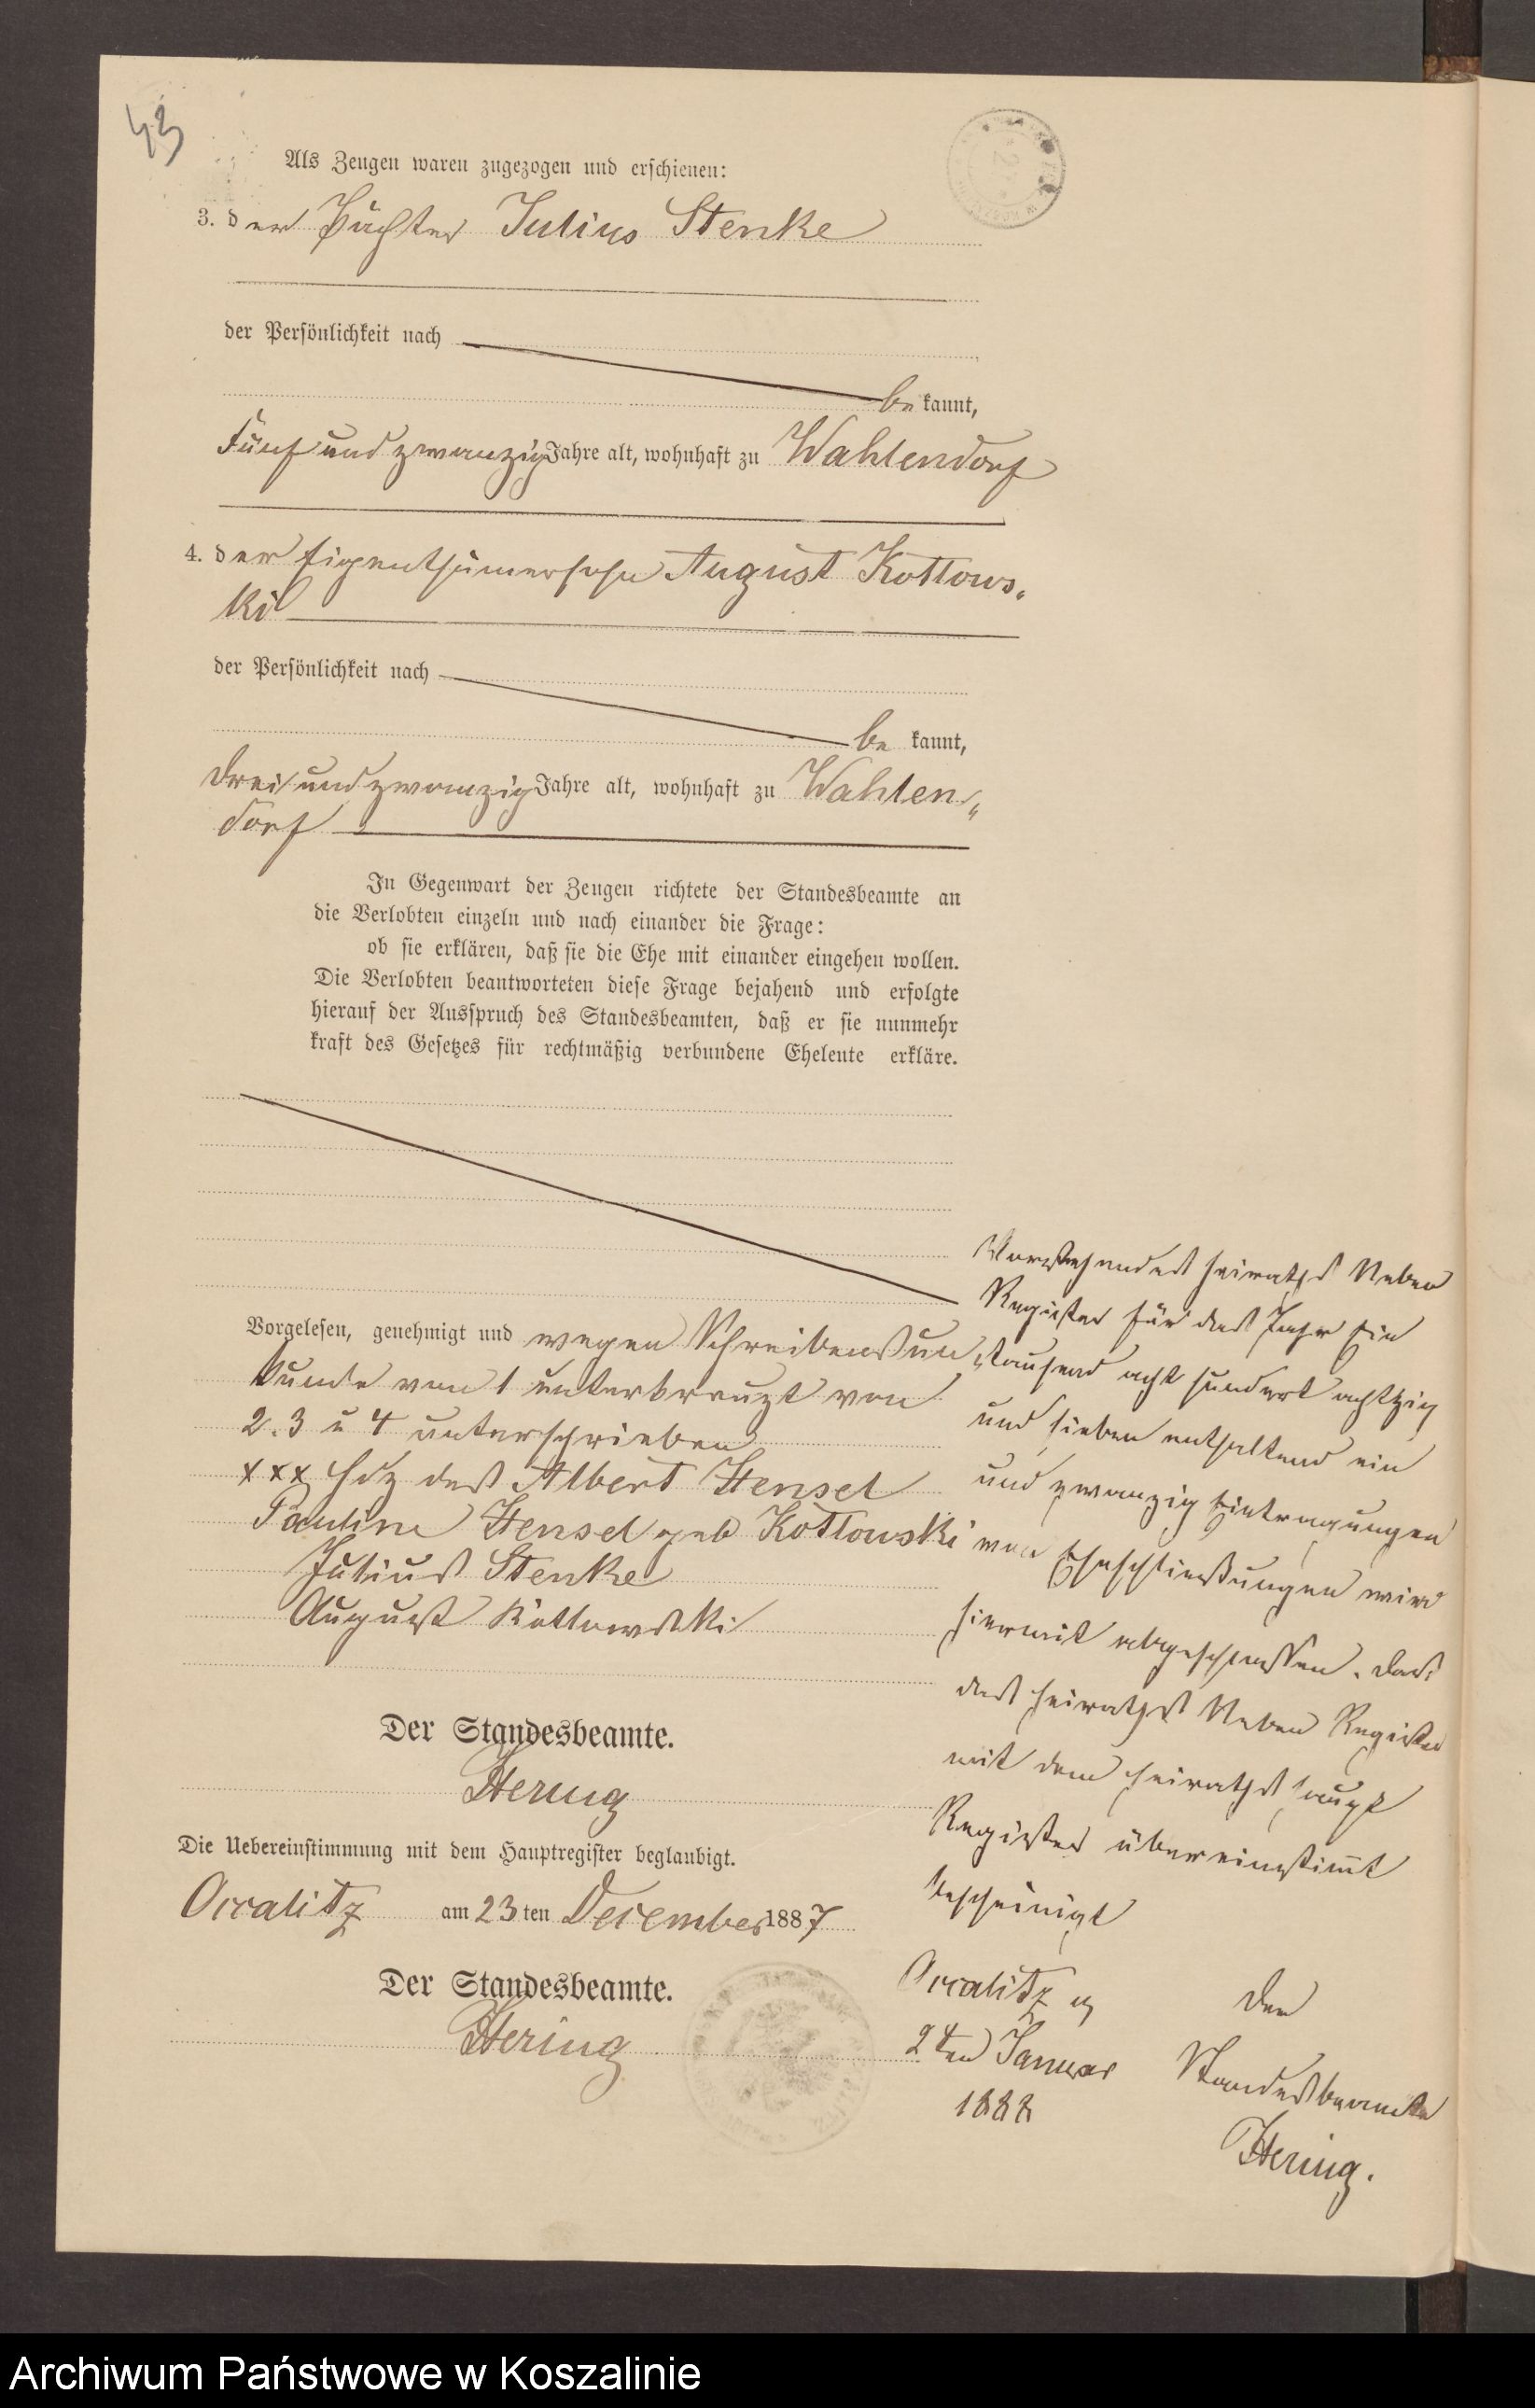 43
Als Zeugen waren zugezogen und erschienen:
3. der Pächter Julius Stenke
der Persönlichkeit nach
be kannt,
Fünf und zwanzig Jahre alt, wohnhaft zu Wahlendorf
4. der Eigenthümersohn August Kottows-
ki
der Persönlichkeit nach
be kannt,
drei und zwanzig Jahre alt, wohnhaft zu Wahlen„
dorf
In Gegenwart der Zeugen richtete der Standesbeamte an
die Verlobten einzeln und nach einander die Frage:
ob sie erklären, daß sie die Ehe mit einander eingehen wollen.
Die Verlobten beantworteten diese Frage bejahend und erfolgte
hierauf der Ausspruch des Standesbeamten, daß er sie nunmehr
kraft des Gesetzes für rechtmäßig verbundene Eheleute erkläre.
Vorgelesen, genehmigt und wegen Schreibensun„
kunde von 1 unterkreuzt von
2. 3 u 4 unterschrieben
xxx Hdz des Albert Hensel
Pauline Hensel geb Kottowski
Julius Stenke
August Kottowski
Der Standesbeamte.
Hering
Die Uebereinstimmung mit dem Hauptregister beglaubigt.
Occalitz am 23 ten December 1887
Der Standesbeamte.
Hering
Vorstehendes Heiraths Neben
Register für das Jahr Ein
tausend acht hundert achtzig
und sieben enthaltend ein
und zwanzig Eintragungen
von Eheschließungen wird
hiermit abgeschlossen. Das
das Heiraths Neben Register
mit dem Heiraths Haupt
Register übereinstimt
bescheinigt
Occalitz
2ten Januar
1888
Der
Standesbeamte
Hering.
Archiwum Państwowe w Koszalinie